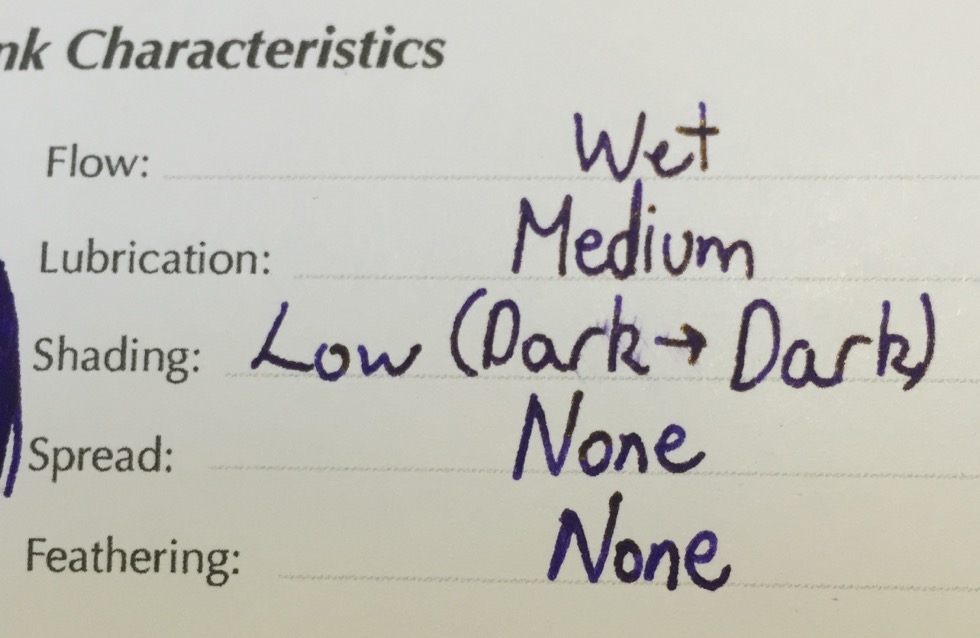 nk Characteristics
Flow: Wet
Lubrication: Medium
Shading: Low (Dark → Dark)
Spread: None
Feathering: None